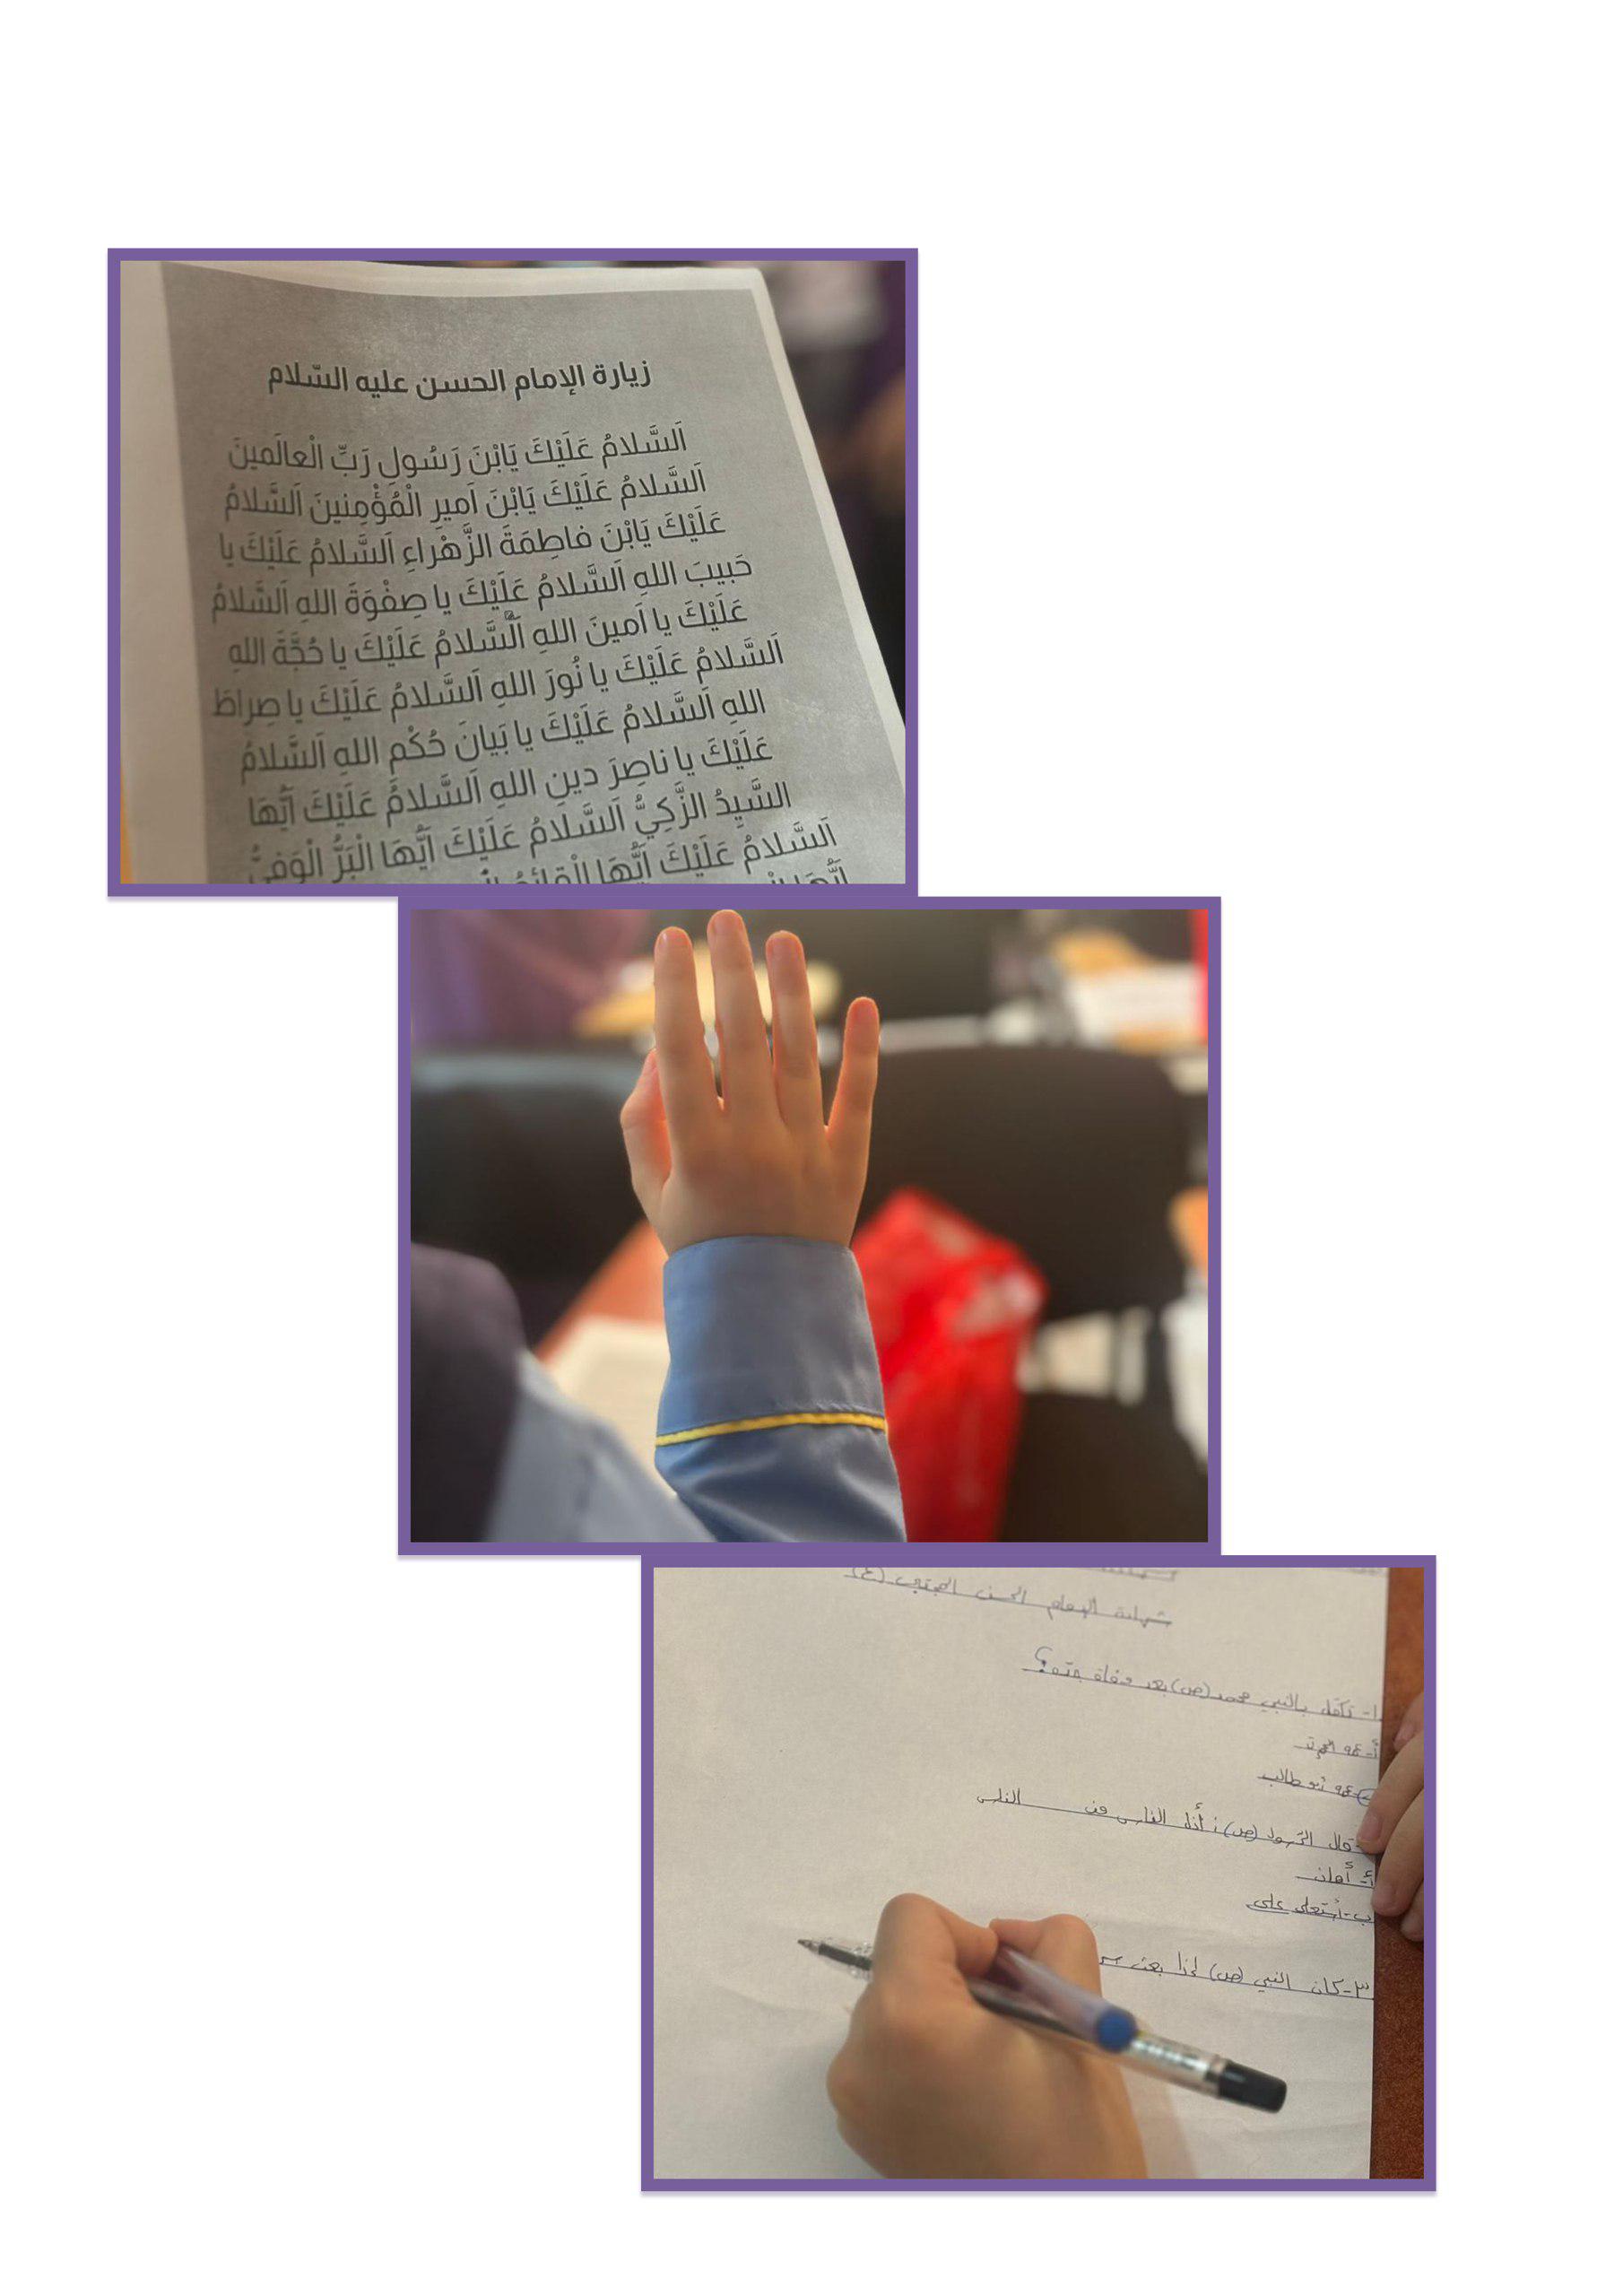 زيارة الإمام الحسن عليه السّلام
اَلسَّلامُ عَلَيْكَ يَابْنَ رَسُولِ رَبِّ الْعالَمينَ
اَلسَّلامُ عَلَيْكَ يَابْنَ اَميرِ الْمُؤْمِنينَ اَلسَّلامُ
عَلَيْكَ يَابْنَ فاطِمَةَ الزَّهْراءِ اَلسَّلامُ عَلَيْكَ يا
حَبيبَ اللهِ اَلسَّلامُ عَلَيْكَ يا صِفْوَةَ اللهِ اَلسَّلامُ
عَلَيْكَ يا اَمينَ اللهِ اَلسَّلامُ عَلَيْكَ يا حُجَّةَ اللهِ
اَلسَّلامُ عَلَيْكَ يا نُورَ اللهِ اَلسَّلامُ عَلَيْكَ يا صِراطَ
اللهِ اَلسَّلامُ عَلَيْكَ يا بَيانَ حُكْمِ اللهِ اَلسَّلامُ
عَلَيْكَ يا ناصِرَ دينِ اللهِ اَلسَّلامُ عَلَيْكَ اَيُّهَا
السَّيِدُ الزَّكِيُّ اَلسَّلامُ عَلَيْكَ اَيُّهَا الْبَرُّ الْوَفِيُّ
اَلسَّلامُ عَلَيْكَ اَيُّهَا الْقائِمُ
شهادة الإمام الحسن المجتبى (ع)
١- تكفّل بالنبي محمد (ص) بعد وفاة جده؟
أ- عمه
عمه أبو طالب
قال الرسول (ص): أذل الناس من الناس
أ- أهان
ب- استعلى على
٣- كان النبي (ص) إذا بعث